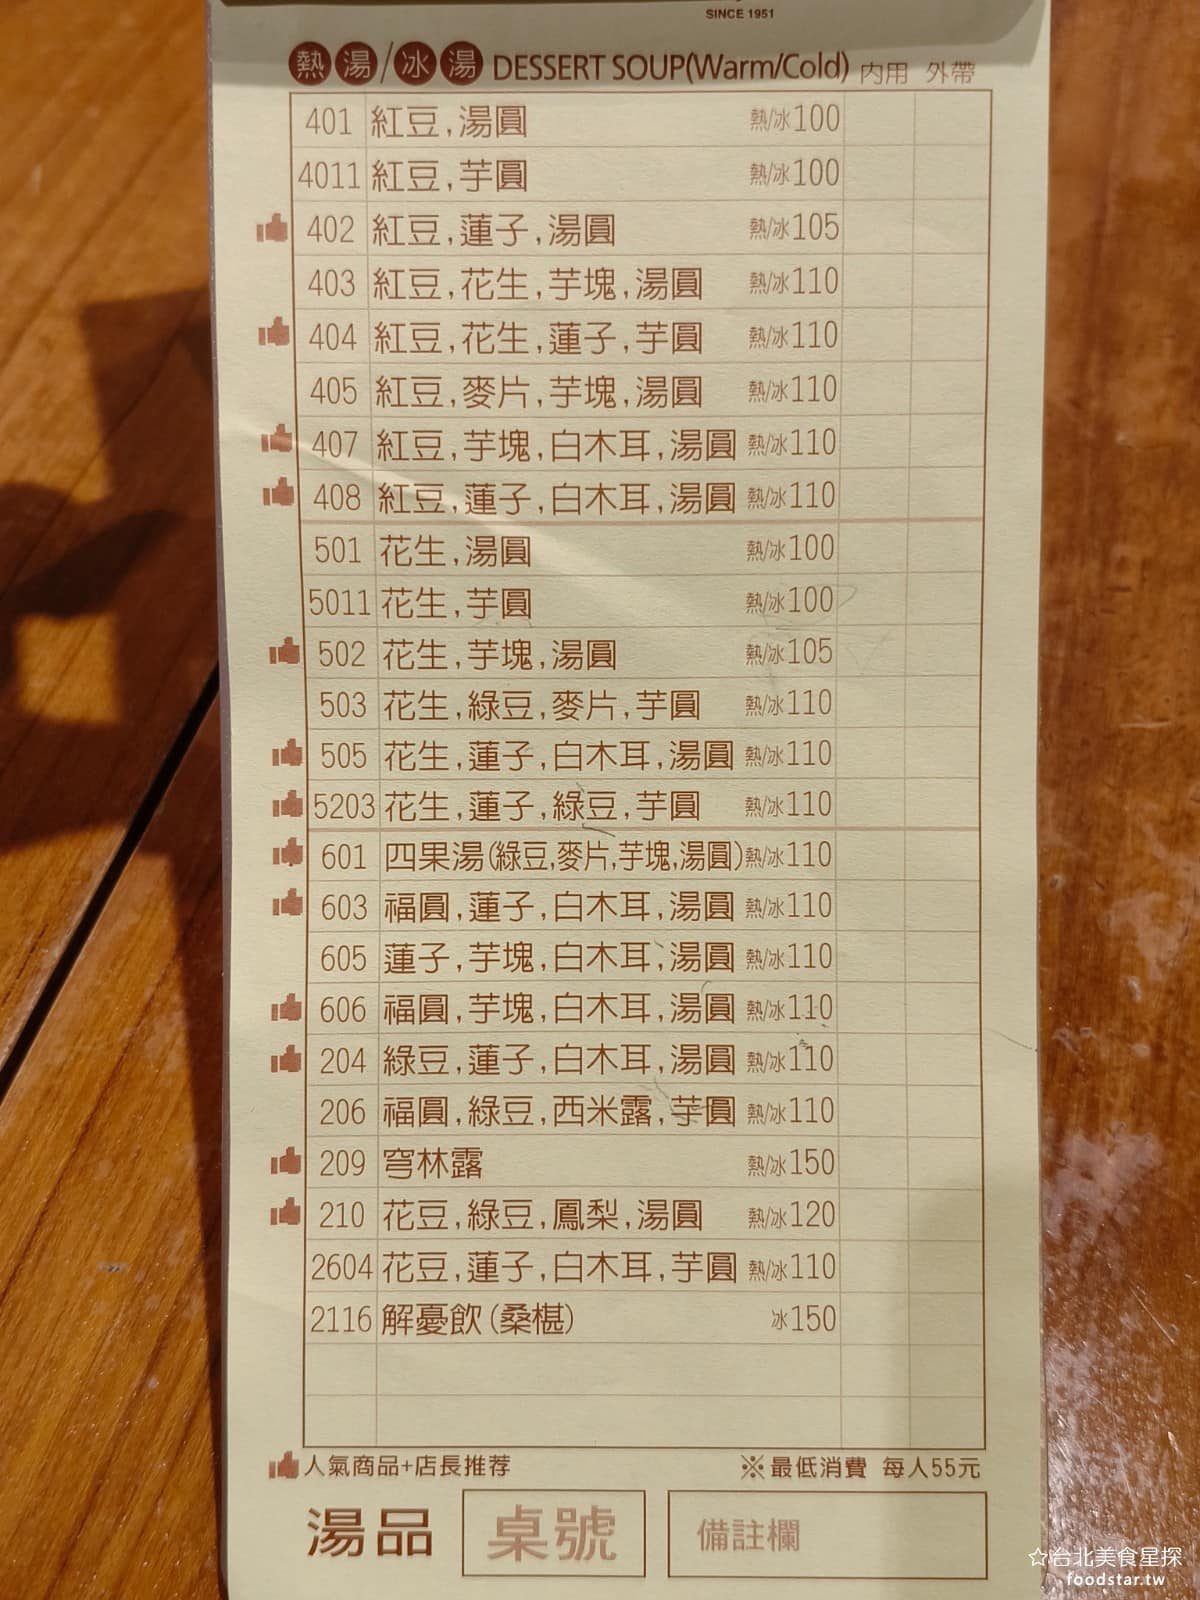 SINCE 1951
熱湯/冰湯 DESSERT SOUP(Warm/Cold) 內用 外帶
401 紅豆,湯圓 熱/冰100
4011 紅豆,芋圓 熱/冰100
402 紅豆,蓮子,湯圓 熱/冰105
403 紅豆,花生,芋塊,湯圓 熱/冰110
404 紅豆,花生,蓮子,芋圓 熱/冰110
405 紅豆,麥片,芋塊,湯圓 熱/冰110
407 紅豆,芋塊,白木耳,湯圓 熱/冰110
408 紅豆,蓮子,白木耳,湯圓 熱/冰110
501 花生,湯圓 熱/冰100
5011 花生,芋圓 熱/冰100
502 花生,芋塊,湯圓 熱/冰105
503 花生,綠豆,麥片,芋圓 熱/冰110
505 花生,蓮子,白木耳,湯圓 熱/冰110
5203 花生,蓮子,綠豆,芋圓 熱/冰110
601 四果湯(綠豆,麥片,芋塊,湯圓) 熱/冰110
603 福圓,蓮子,白木耳,湯圓 熱/冰110
605 蓮子,芋塊,白木耳,湯圓 熱/冰110
606 福圓,芋塊,白木耳,湯圓 熱/冰110
204 綠豆,蓮子,白木耳,湯圓 熱/冰110
206 福圓,綠豆,西米露,芋圓 熱/冰110
209 穹林露 熱/冰150
210 花豆,綠豆,鳳梨,湯圓 熱/冰120
2604 花豆,蓮子,白木耳,芋圓 熱/冰110
2116 解憂飲(桑椹) 冰150
人氣商品+店長推荐 ※最低消費 每人55元
湯品 桌號 備註欄
☆台北美食星探
foodstar.tw